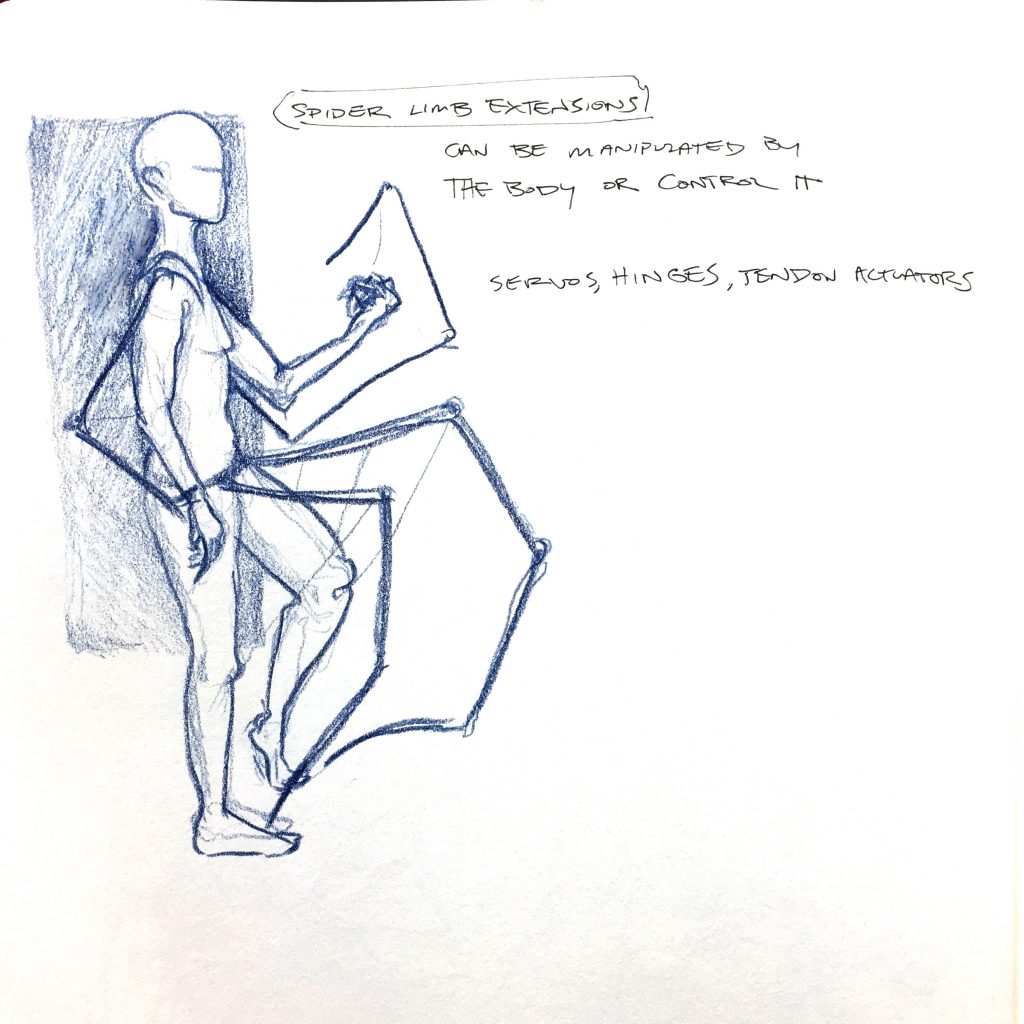 SPIDER LIMB EXTENSIONS
CAN BE MANIPULATED BY
THE BODY OR CONTROL IT
SERVOS, HINGES, TENDON ACTUATORS